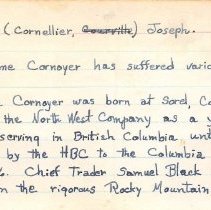 (Cornellier, Courville) Joseph.
me Cornoyer has suffered vario
Cornoyer was born at Sorel, C
the North West Company as a
serving in British Columbia unt
by the HBC to the Columbia
Chief Trader Samuel Black
the rigorous Rocky Mountain